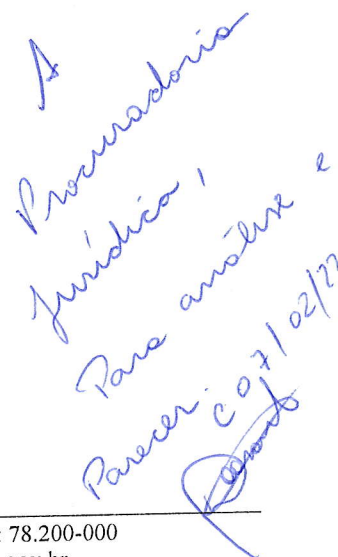 A
Procuradoria
Jurídica,
Para análise e
Parecer. 07/02/22
: 78.200-000